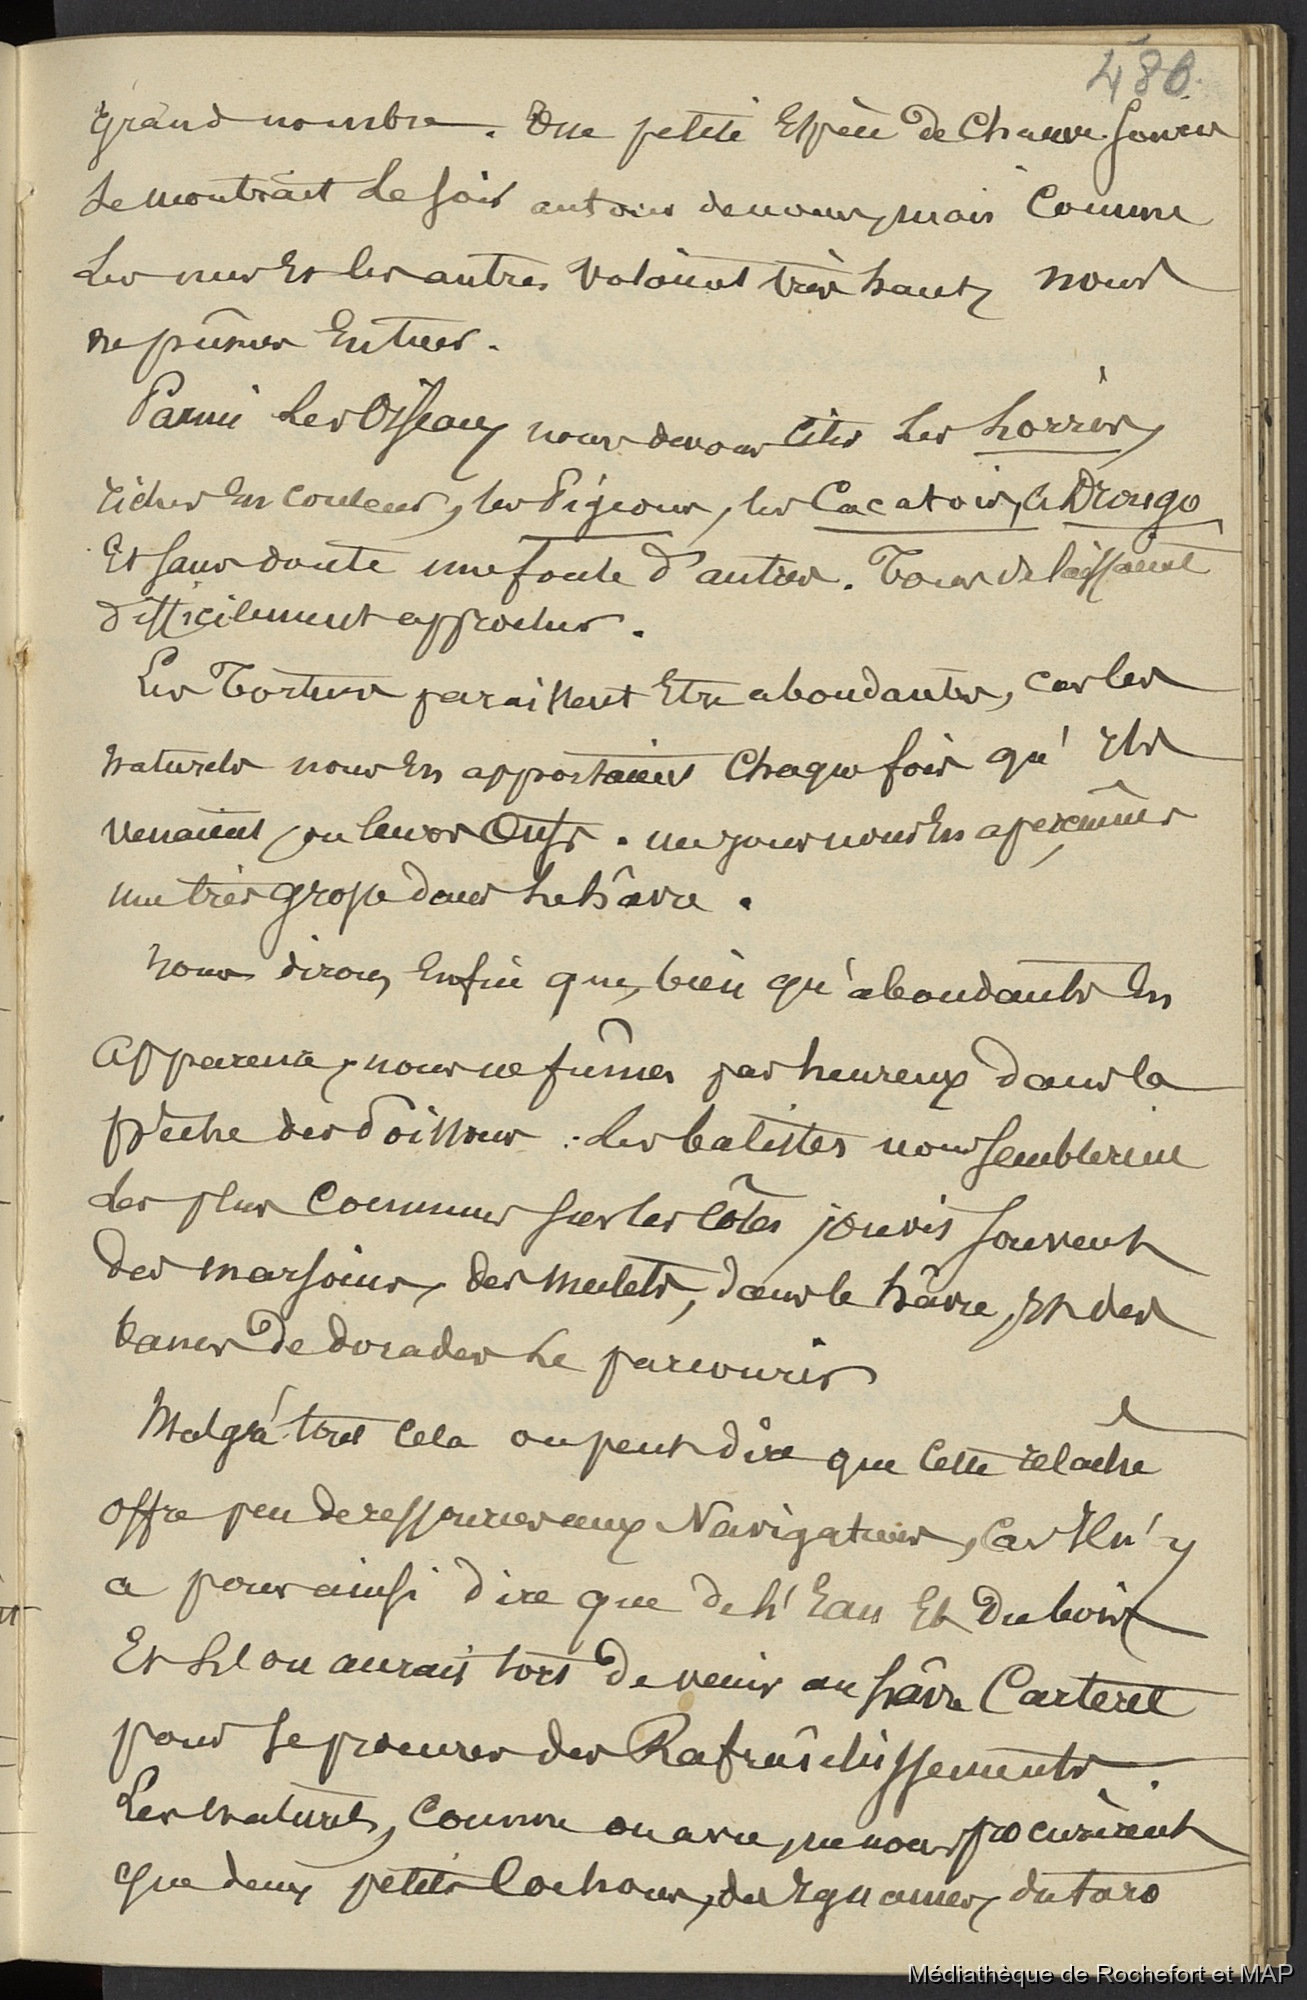 486.
grand nombre. Une petite Espèce de Chauve-Souris
se montrait le soir autour de nous, mais Comme
les unes Et les autres Volaient très haut, nous
ne pûmes En tuer.
Parmi les Oiseaux nous devons Citer les Lorris,
riches En Couleurs, les Pigeons, les Cacatois, le Drongo
Et sans doute une foule d'autres. Tous se laissaient
difficilement approcher.
Les Tortues paraissent Etre abondantes, car les
naturels nous En apportaient Chaque fois qu'Ils
venaient, ou leurs Oeufs. un jour nous En aperçûmes
une très grosse dans le hâvre.
Nous dirons Enfin que, bien qu'abondants En
Apparence, nous ne fûmes pas heureux dans la
pêche des Poissons. Les balistes nous semblerent
les plus Communs sur les Côtes, je vis souvent
des marsoins, des mulets, dans le hâvre, Et des
bancs de dorades le parcourir
Malgré tout Cela on peut dire que Cette relâche
offre peu de ressources aux Navigateurs, Car Il n'y
a pour ainsi dire que de l'Eau Et du bois
Et l'on aurait tort de venir au hâvre Carteret
pour se procurer des Rafraîchissements.
Les naturels, Comme on a vu, ne nous procurèrent
que deux petits Cochons, des Ignames, du taro
Médiathèque de Rochefort et MAP